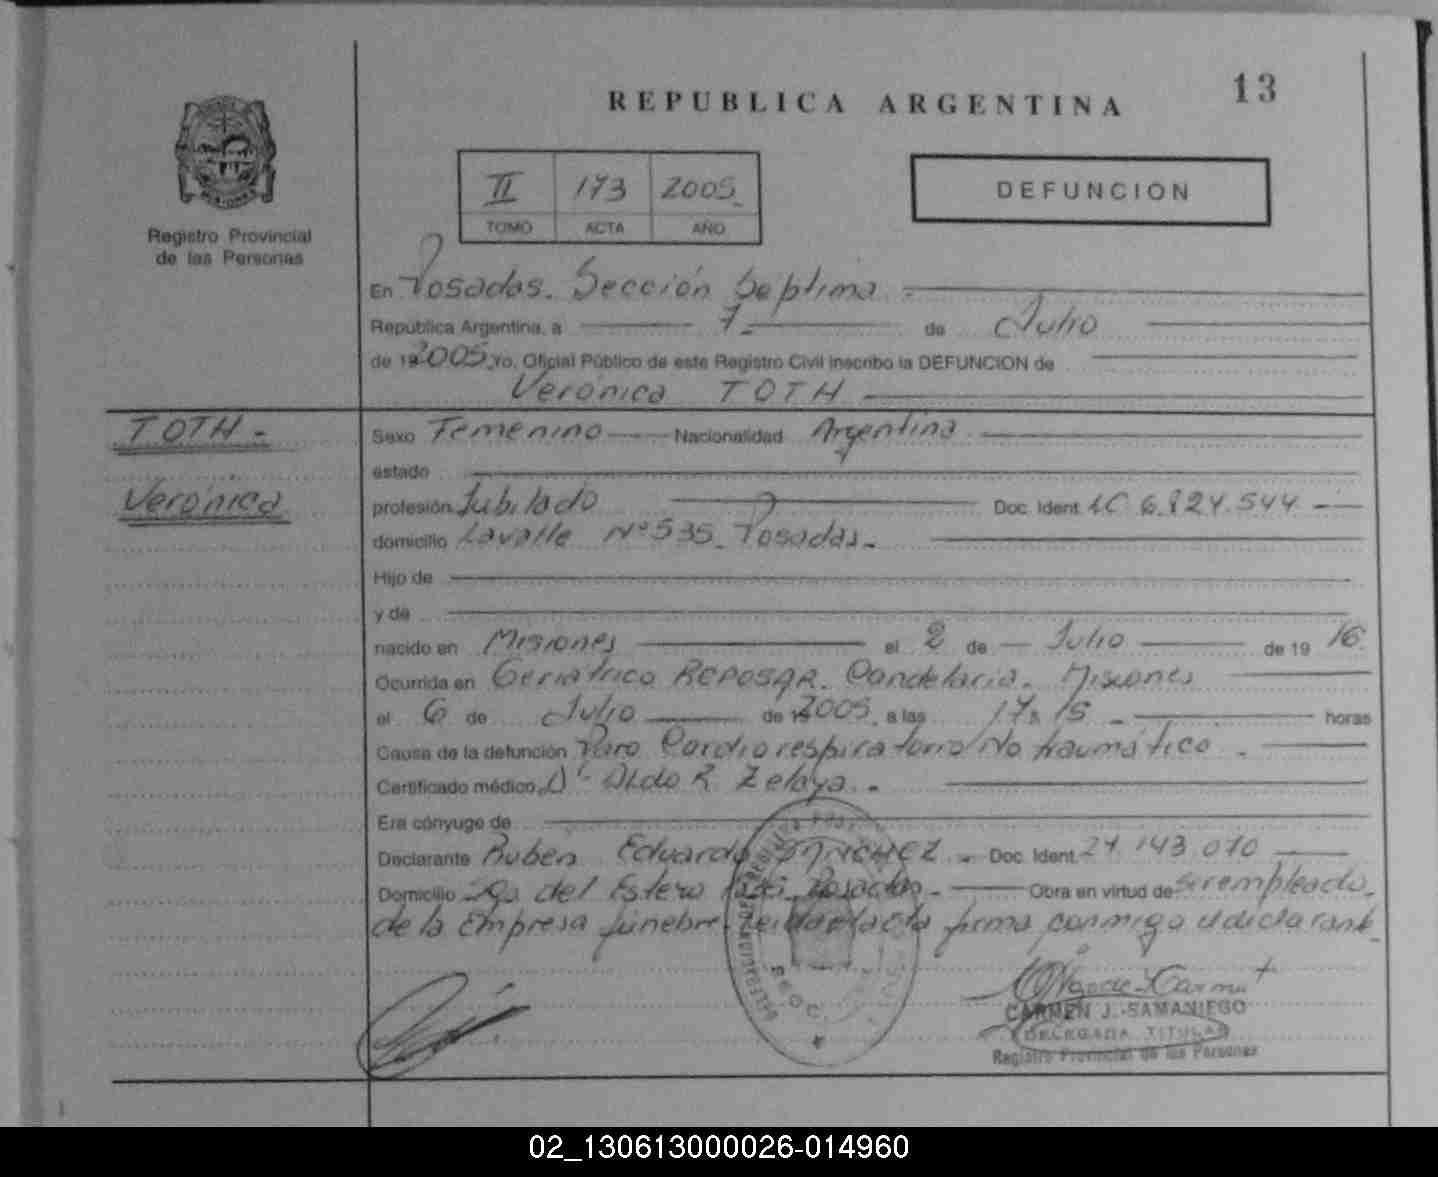 13
REPUBLICA ARGENTINA
II 173 2005
TOMO ACTA AÑO
DEFUNCION
Registro Provincial
de las Personas
En Posadas. Sección Septima
República Argentina, a 7 de Julio
de 19 2005 Yo, Oficial Público de este Registro Civil inscribo la DEFUNCION de
Verónica TOTH
TOTH -
Verónica
Sexo Femenino Nacionalidad Argentina
estado
profesión Jubilado Doc. Ident. LC 6.824.544
domicilio Lavalle Nº 535 Posadas.
Hijo de
y de
nacido en Misiones el 2 de Julio de 19 16
Ocurrida en Geriatrico REPOSAR. Candelaria. Misiones
el 6 de Julio de 19 2005 a las 17:15 horas
Causa de la defunción Paro Cardiorespiratorio No traumático
Certificado médico Dr Aldo R. Zelaya
Era cónyuge de
Declarante Ruben Eduardo Doc. Ident. 24.143.010
Domicilio Sgo del Estero Posadas Obra en virtud de ser empleado
de la Empresa fúnebre Leida el acta firma conmigo el declarante
CARMEN J. SAMANIEGO
DELEGADA TITULAR
Registro Provincial de las Personas
02_130613000026-014960